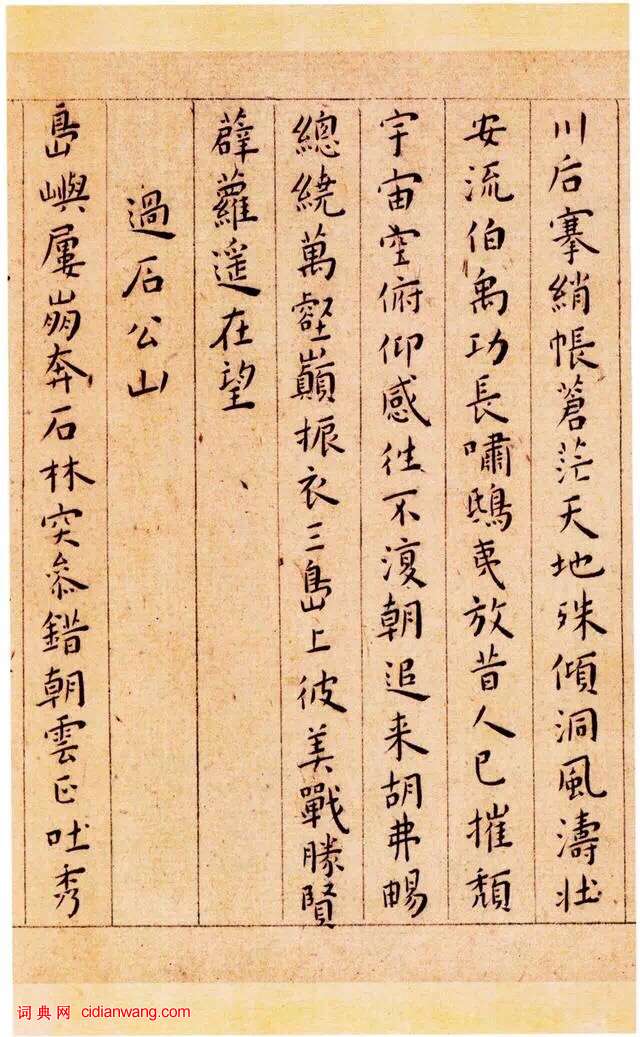 川后搴綃帳蒼茫天地殊傾洞風濤壯
安流伯禹功長嘯鴟夷放昔人已摧頹
宇宙空俯仰感往不復朝追来胡弗暢
總繞萬壑巔振衣三島上彼美戰勝賢
薜蘿遥在望
過石公山
島嶼屢崩奔石林突叅錯朝雲正吐秀
词典网 cidianwang.com